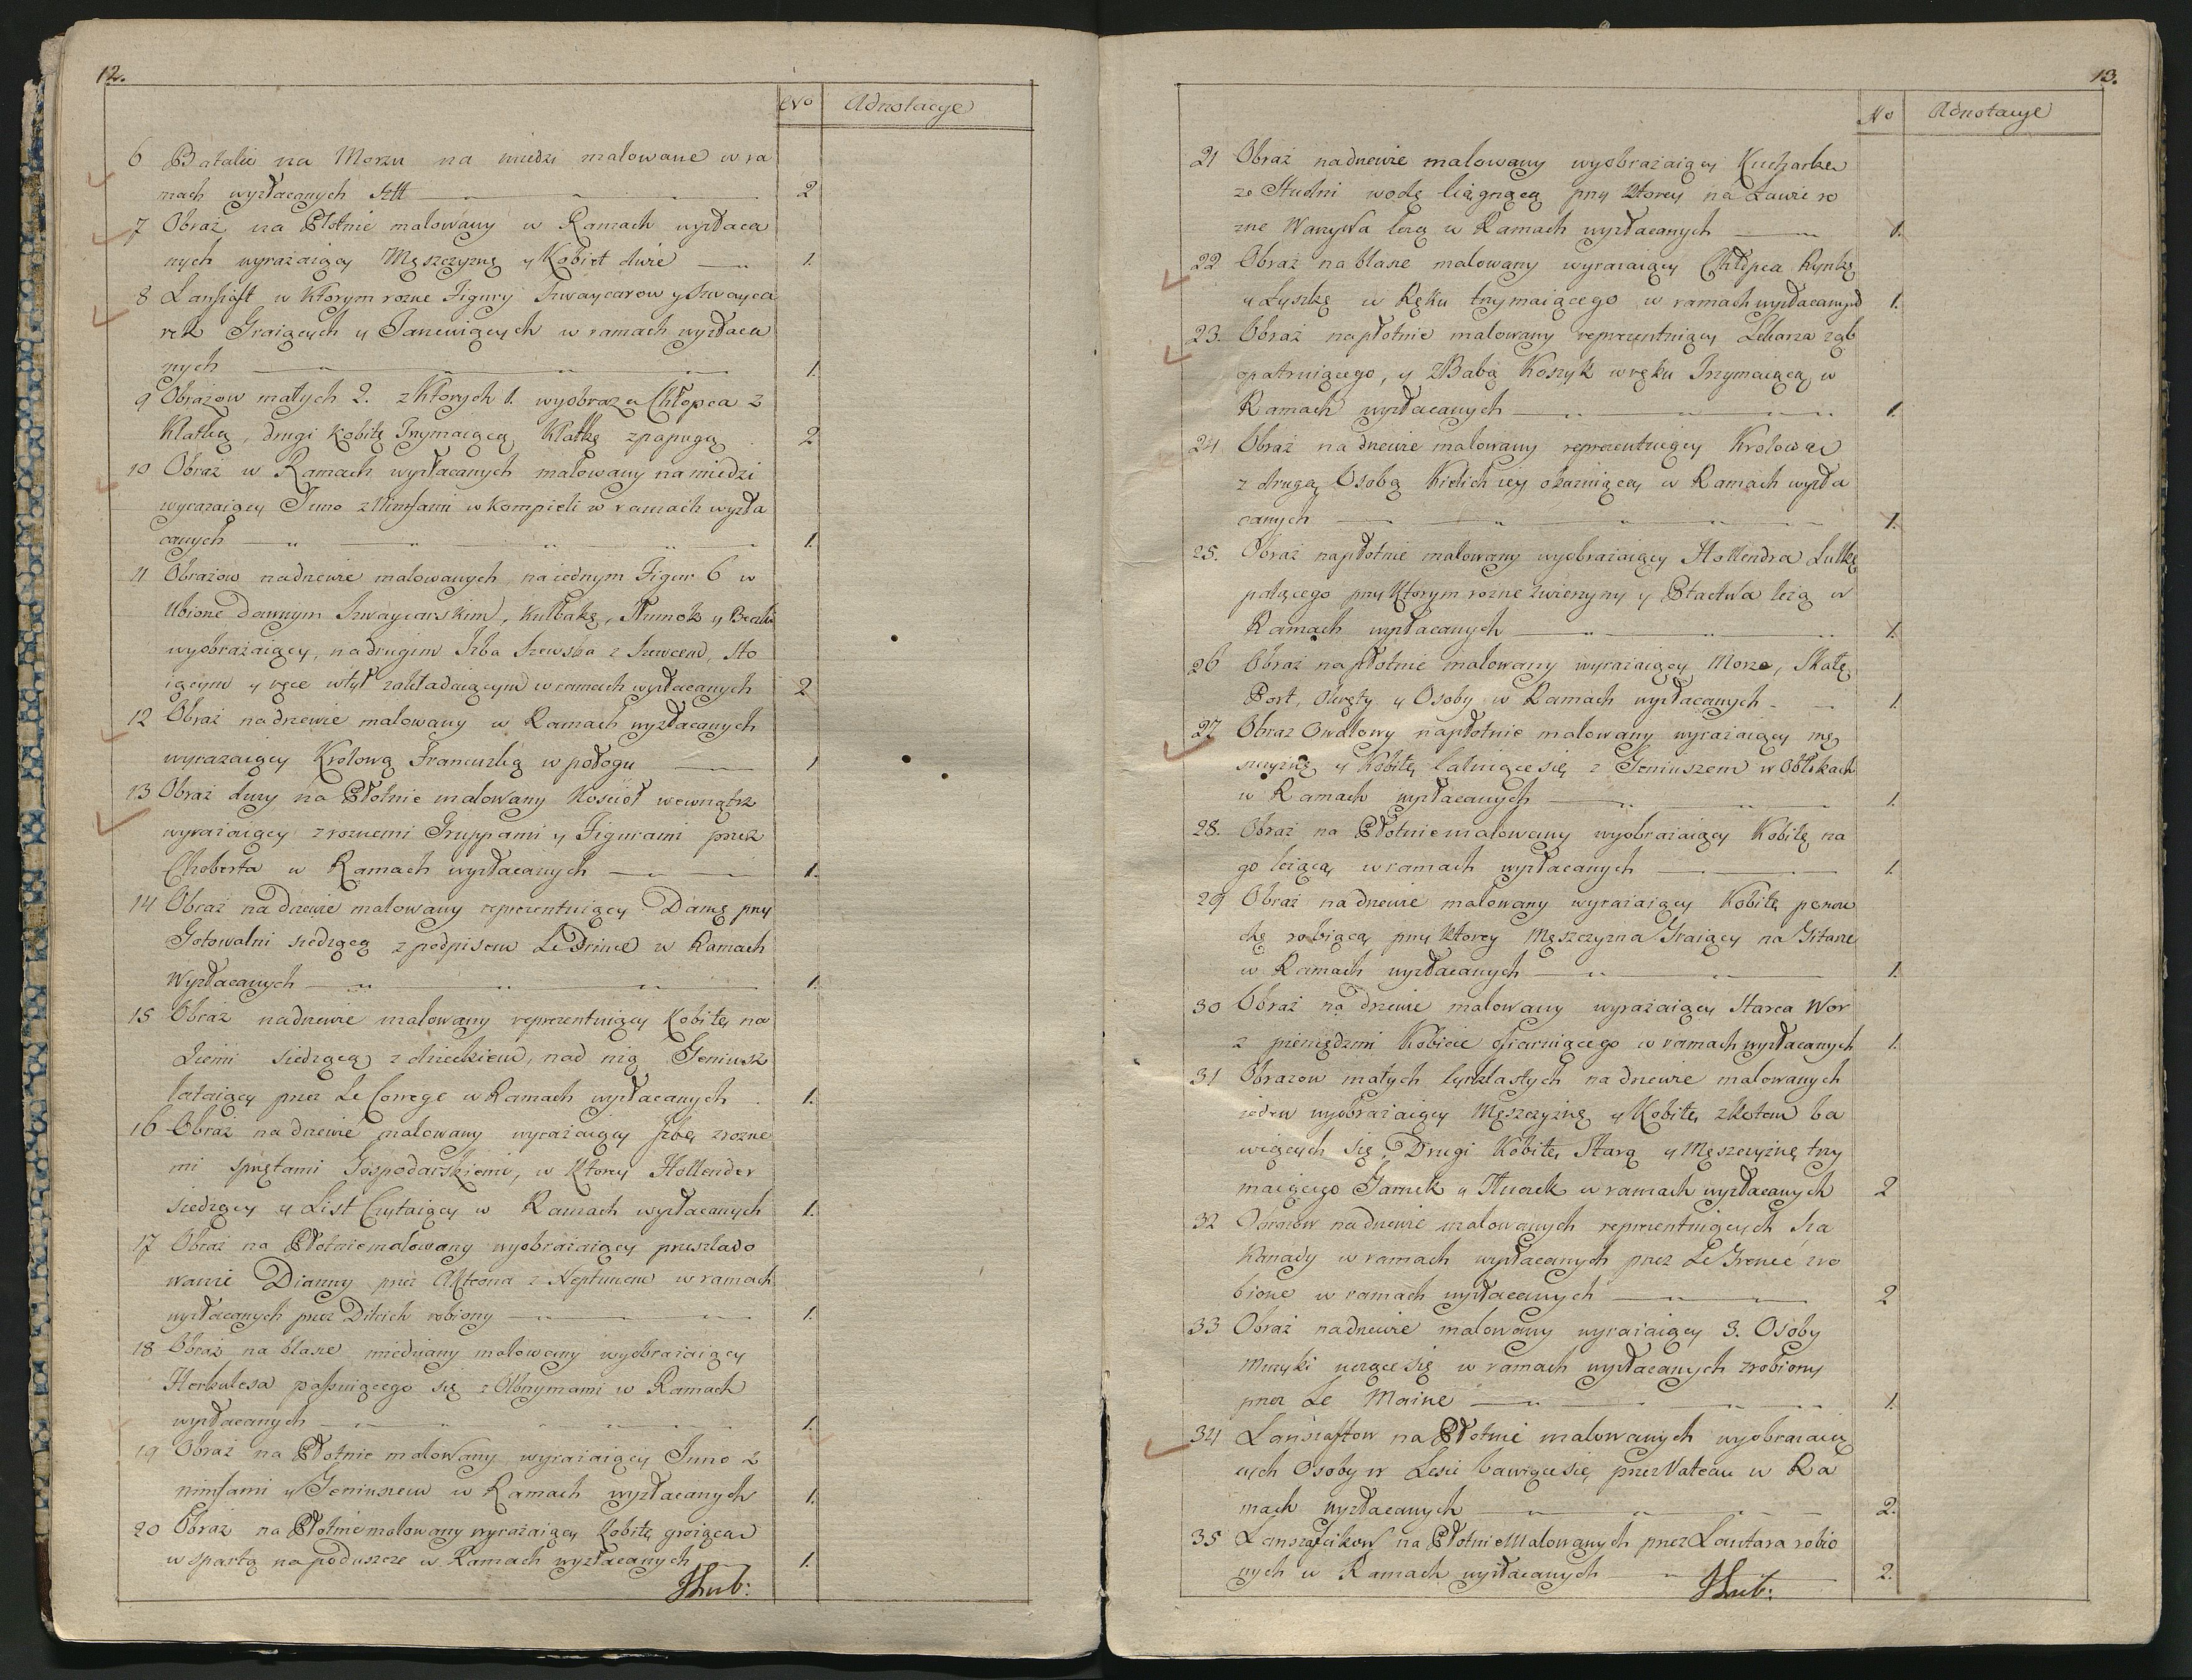 12.
No Adnotacye
6 Batalie na Morzu na miedzi malowane w ra
mach wyzłacanych Stt 2
7 Obraz na Płotnie malowany w Ramach wyzłaca
nych wyrazaiący Męszczyznę y Kobiet dwie 1.
8 Lanszaft w ktorym rozne Figury Szwaycarow y Szwayca
rek Graiących y Tancuiących w ramach wyzłaca
nych 1.
9 Obrazow małych 2. z ktorych 1. wyobraza Chłopca z
Klatką, drugi Kobitę Trzymaiącą Klatkę z papugą 2
10 Obraz w Ramach wyzłacanych malowany na miedzi
wyrazaiący Juno z Nimfami w kompieli w ramach wyzła
canych 1.
11 Obrazow na drzewie malowanych na iednym Figur 6 w
Ubiorze dawnym Szwaycarskim, Kulbakę, Tłumok y Beczki
wyobrazaiący, na drugim Izba Szewska z Szewcem, Sto
iącym y ręce wtył zakładaiącym w ramach wyzłacanych 2
12 Obraz na drzewie malowany w Ramach wyzłacanych
wyrazaiący Krolową Francuzką w połogu 1
13 Obraz duzy na Płotnie malowany Kościoł wewnątrz
wyrazaiący z roznemi Gruppami y Figurami przez
Choberta w Ramach wyzłacanych 1.
14 Obraz na Drzewie malowany reprezentuiący Damę przy
Gotowalni siedzącą z podpisem Le Prince w Ramach
Wyzłacanych 1.
15 Obraz na drzewie malowany reprezentuiący Kobitę na
Ziemi siedzącą z dzieckiem, nad nią Geniusz
lataiący przez Le Correge w Ramach wyzłacanych 1.
16 Obraz na drzewie malowany wyrazaiący Izbę z rozne
mi sprzętami Gospodarskiemi, w ktorey Hollender
siedzący y List Czytaiący w Ramach wyzłacanych 1.
17 Obraz na Płotnie malowany wyobrazaiący przeslado
wanie Dianny przez Akteona z Neptunem w ramach
wyzłacanych przez Ditrich robiony 1.
18 Obraz na blasze miedziany malowany wyobrazaiący
Herkulesa passuiącego się z Olbrzymami w Ramach
wyzłacanych 1.
19 Obraz na Płotnie malowany wyrazaiący Juno z
nimfami y Geniuszem w Ramach wyzłacanych 1.
20 Obraz na Płotnie malowany wyrazaiący Kobitę grożącą
wspartą na poduszce w Ramach wyzłacanych 1.
13.
No Adnotacye
21 Obraz na drzewie malowany wyobrazaiący Kucharkę
ze Studni wodę ciągnącą przy ktorey na Ławie ro
zne Warzywa lezą w Ramach wyzłacanych 1.
22 Obraz na blasze malowany wyrazaiący Chłopca Rynkę
y Łyszkę w Ręku trzymaiącego w ramach wyzłacanych 1.
23. Obraz na płotnie malowany reprezentuiący Lekarza ząb
opatruiącego, y z Babą Koszyk w ręku Trzymaiącą w
Ramach wyzłacanych 1.
24 Obraz na drzewie malowany reprezentuiący Krolową
z drugą Osobą Kielich iey okazuiącą w Ramach wyzła
canych 1.
25. Obraz na płotnie malowany wyobrazaiący Hollendra Lulkę
palącego przy ktorym rozne zwierzyny y Ptactwa lezą w
Ramach wyzłacanych 1.
26 Obraz na płotnie malowany wyrazaiący Morze, Skałę
Port, Okręty y Osoby w Ramach wyzłacanych 1.
27. Obraz Owalowy na płotnie malowany wyrazaiący mę
szczyznę y Kobitę całuiące się z Geniuszem w Obłokach
w Ramach wyzłacanych 1.
28. Obraz na Płotnie malowany wyobrazaiący Kobitę na
go lezącą w ramach wyzłacanych 1.
29 Obraz na drzewie malowany wyrazaiący Kobitę poncu
chę robiącą przy ktorey Męszczyzna Graiący na Gitarze
w Ramach wyzłacanych 1.
30 Obraz na drzewie malowany wyrazaiący Starca Wor
z pieniędzmi Kobicie ofiaruiącego w ramach wyzłacanych 1.
31 Obrazow małych cyrklastych na drzewie malowanych
ieden wyobrazaiący Męszczyznę y Kobitę z Kotem ba
wiących się, Drugi Kobitę Starą y Męszczyznę trzy
maiącego Garnek y w ramach wyzłacanych 2
32 Obrazow na drzewie malowanych reprezentuiących Ka
skady w ramach wyzłacanych przez zro
bione w ramach wyzłacanych 2
33 Obraz na drzewie malowany wyrazaiący 3. Osoby
Muzyki uczące się w ramach wyzłacanych zrobiony
przez Le Moine 1.
34 Lanszaftow na Płotnie malowanych wyobrazaią
cych Osoby w Lesie bawiące się przez Vateau w Ra
mach wyzłacanych 2.
35 Lanszafcikow na Płotnie Malowanych przez Lantara robio
nych w Ramach wyzłacanych 2.